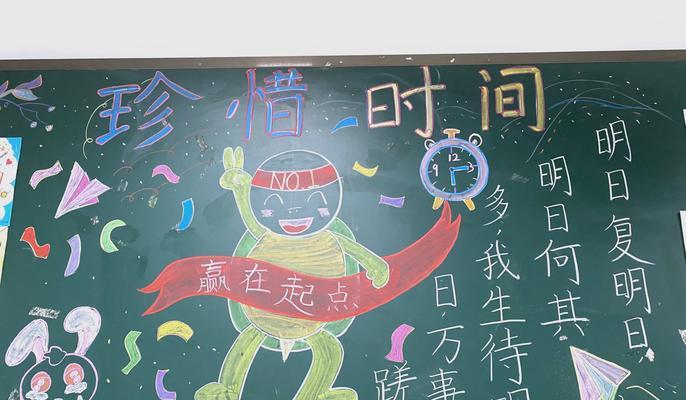 珍惜时间
NO.1
12
9
3
赢在起点
明日复明日
明日何其
多,我生待明
日,万事
蹉